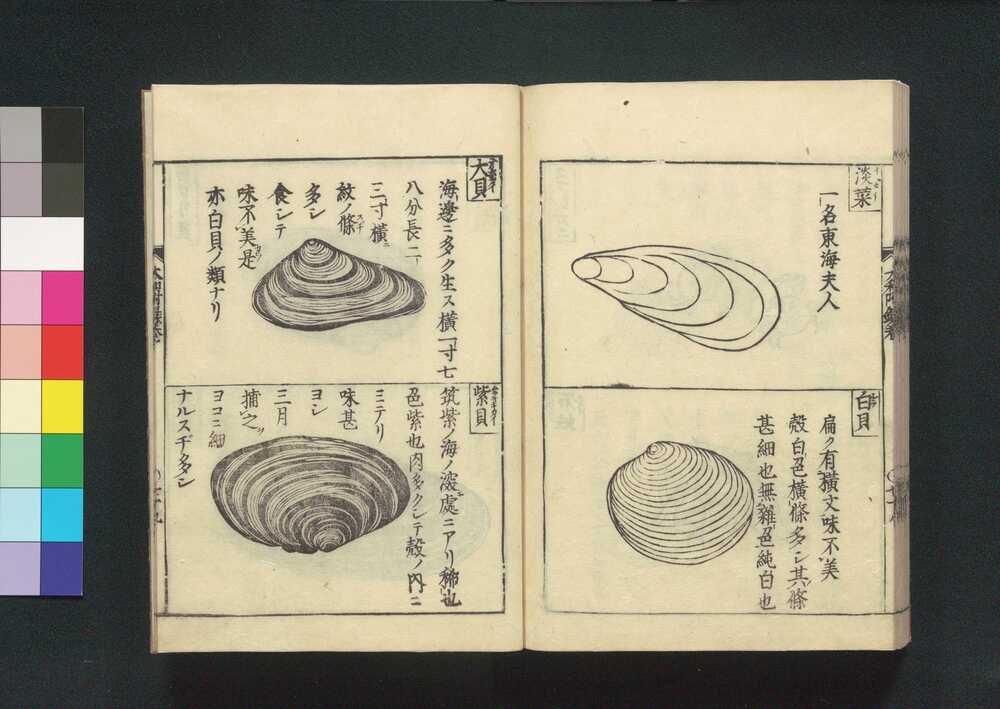 淡菜
一名東海夫人
白貝
扁ク有横文味不美
殻白色横條多シ其條
甚細也無雜色純白也
大貝
海邊ニ多ク生ス横一寸七
八分長二
三寸横ニ
紋ノ條スヂ
多シ
食シテ
味不美是
亦白貝ノ類ナリ
紫貝
筑紫ノ海ノ深處ニアリ稀也
色紫也肉多クシテ殻ノ内ニ
ミテリ
味甚
ヨシ
三月
捕之
ヨコニ細
ナルスヂ多シ